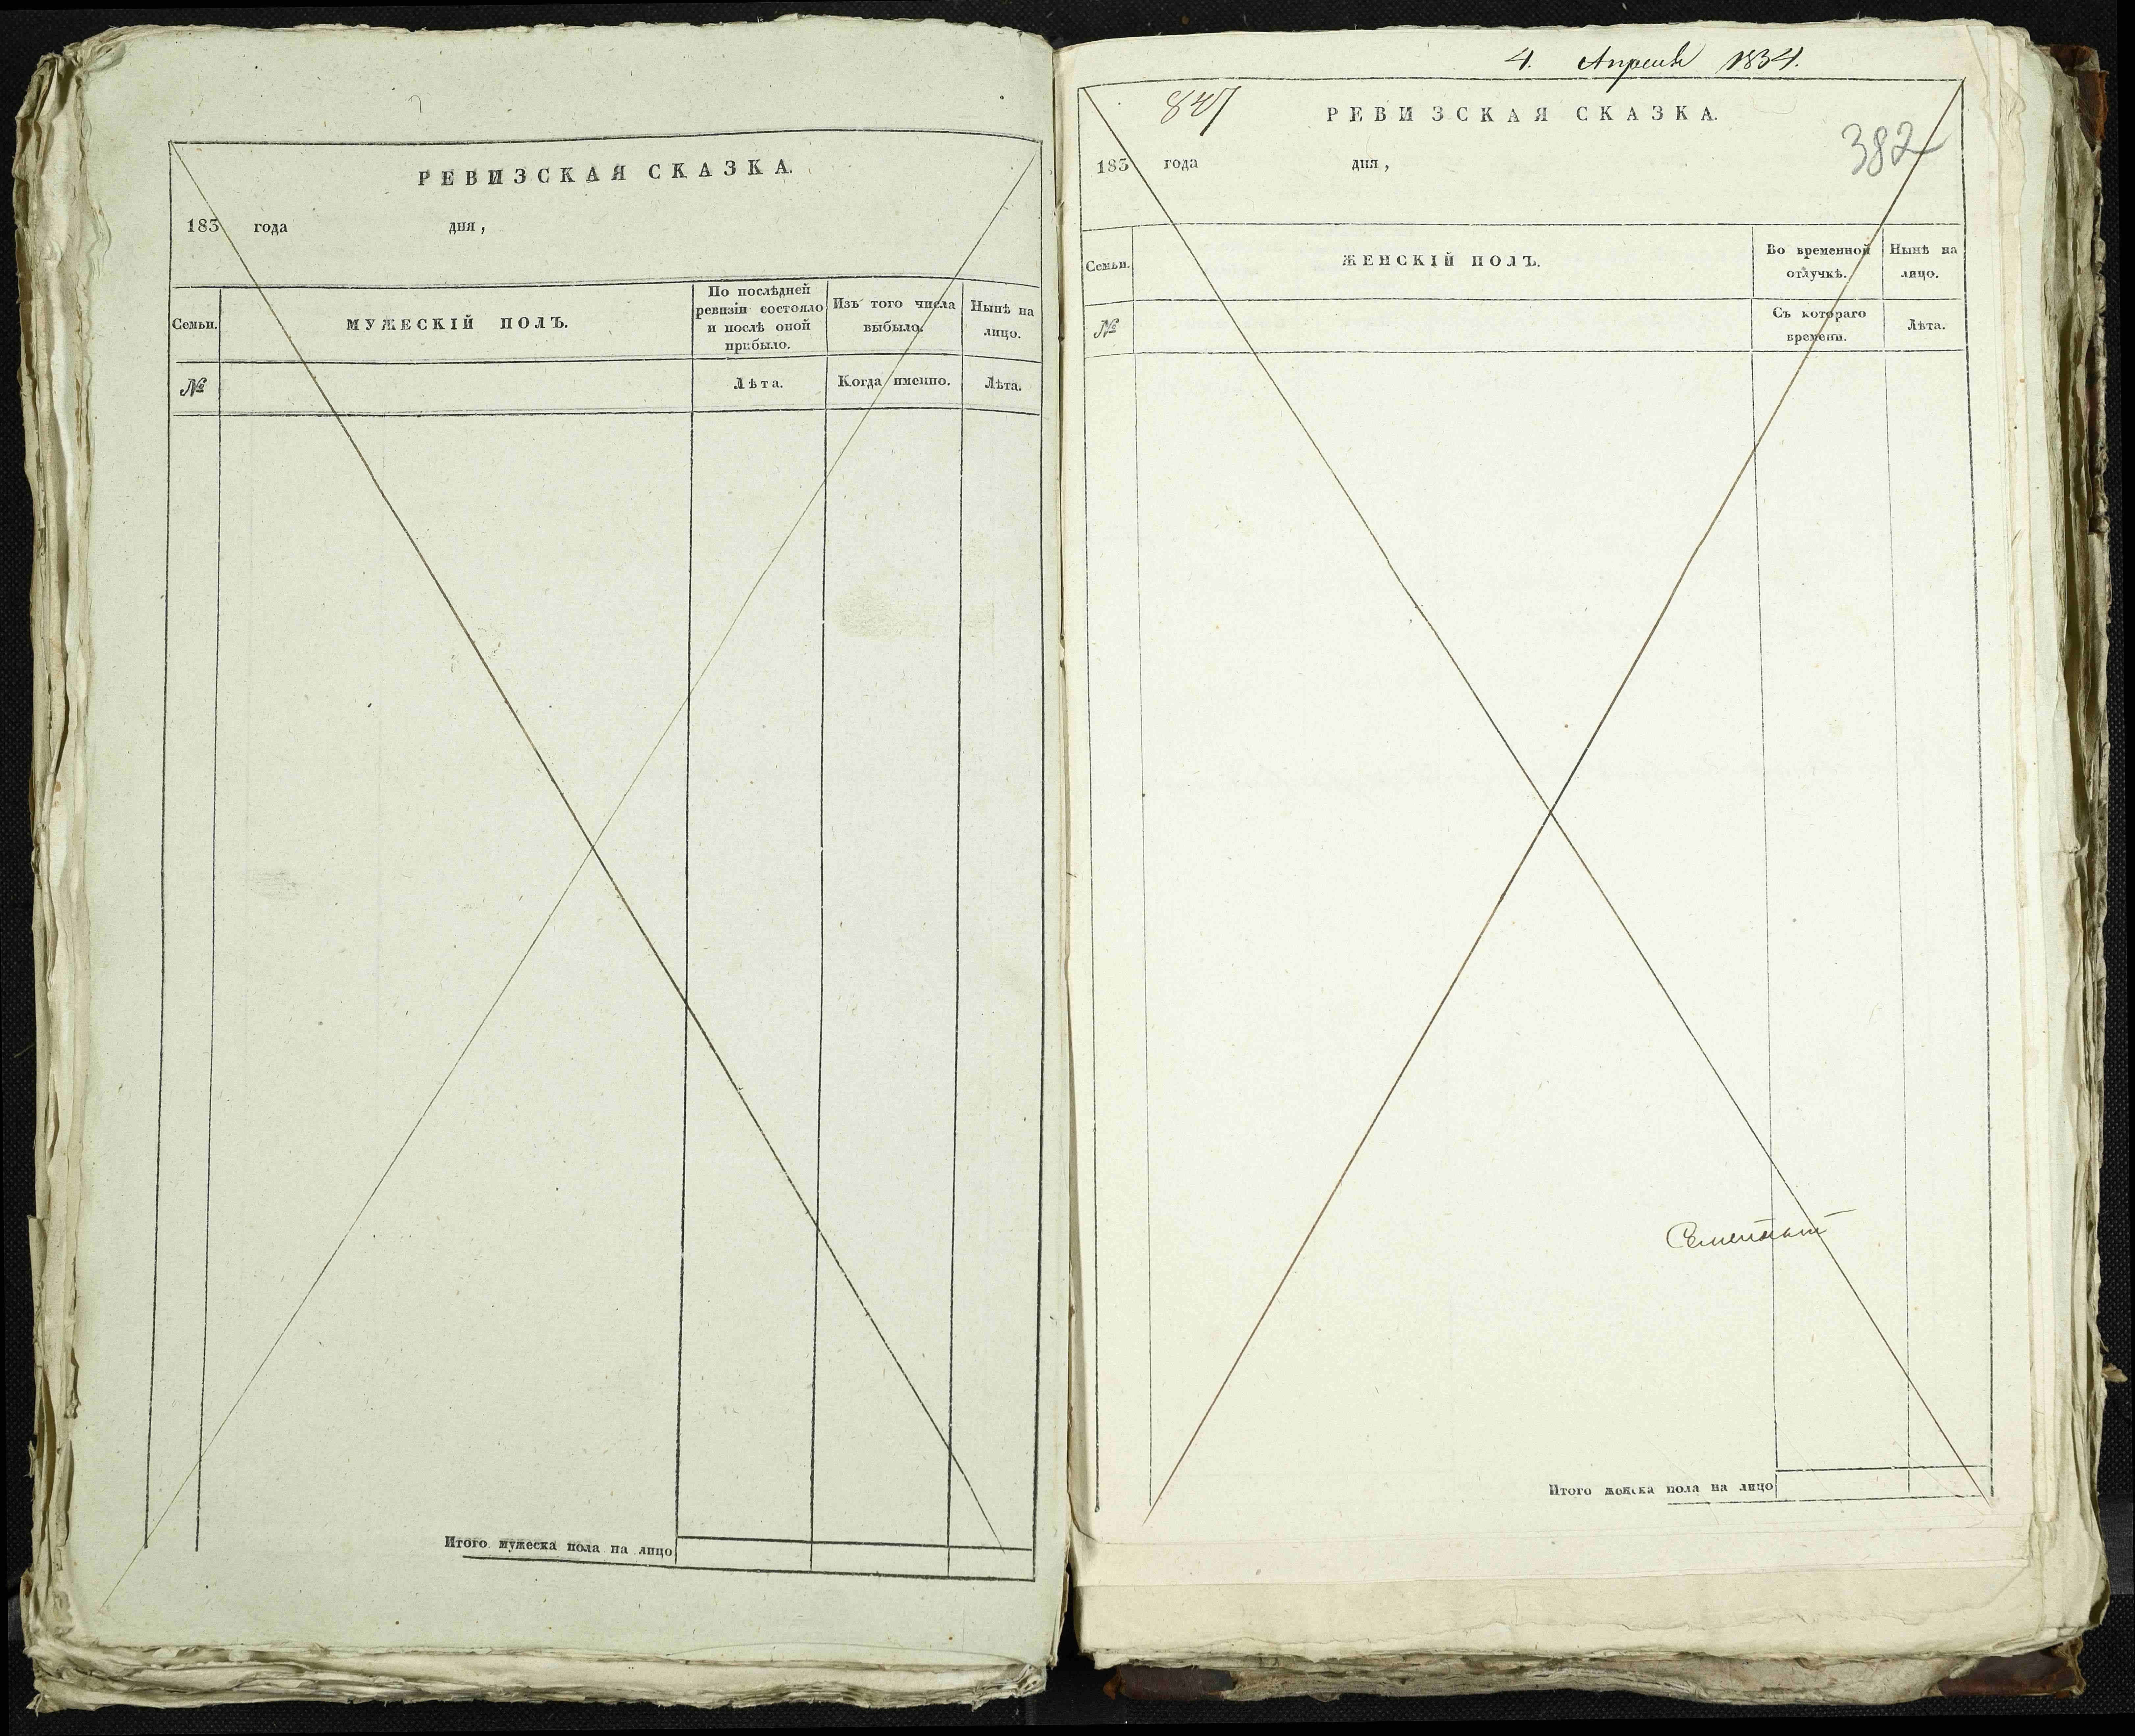 РЕВИЗСКАЯ СКАЗКА.
183 года дня,
Семьи.
МУЖЕСКІЙ ПОЛЪ.
По послѣдней
ревизіи состояло
и послѣ оной
прибыло.
Изъ того числа
выбыло.
Нынѣ на
лицо.
№
Лѣта.
Когда именно.
Лѣта.
Итого мужеска пола на лицо
4. Апреля 1834.
847
РЕВИЗСКАЯ СКАЗКА.
382
183 года дня,
Семьи.
ЖЕНСКІЙ ПОЛЪ.
Во временной
отлучкѣ.
Нынѣ на
лицо.
№
Съ котораго
времени.
Лѣта.
Итого женска пола на лицо